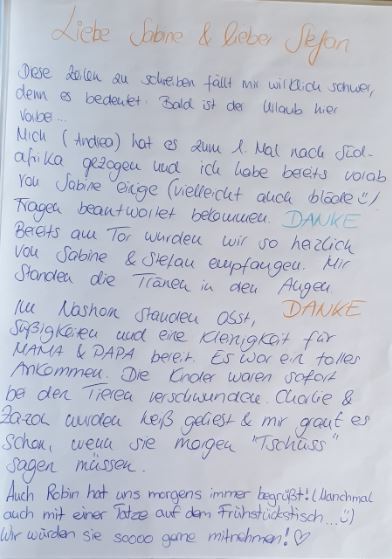 Liebe Sabine & lieber Stefan
Diese Zeilen zu schreiben fällt mir wirklich schwer,
denn es bedeutet: Bald ist der Urlaub hier
vorbei...
Mich (Andrea) hat es zum 1. Mal nach Süd-
afrika gezogen und ich habe bereits vorab
von Sabine einige (vielleicht auch blöde ü)
Fragen beantwortet bekommen. DANKE
Bereits am Tor wurden wir so herzlich
von Sabine & Stefan empfangen. Mir
standen die Tränen in den Augen.
DANKE
Im Nashorn standen Obst,
Süßigkeiten und eine Kleinigkeit für
MAMA & PAPA bereit. Es war ein tolles
Ankommen. Die Kinder waren sofort
bei den Tieren verschwunden. Charlie &
wurden heiß geliebt & mir graut es
schon, wenn sie morgen "Tschüss"
sagen müssen.
Auch Robin hat uns morgens immer begrüßt! (Manchmal
auch mit einer Tatze auf dem Frühstückstisch...ü)
Wir würden sie soooo gerne mitnehmen! ♡